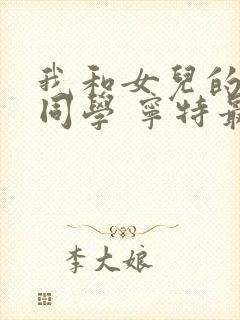 我和女兒的
同學 寧特最
李大娘